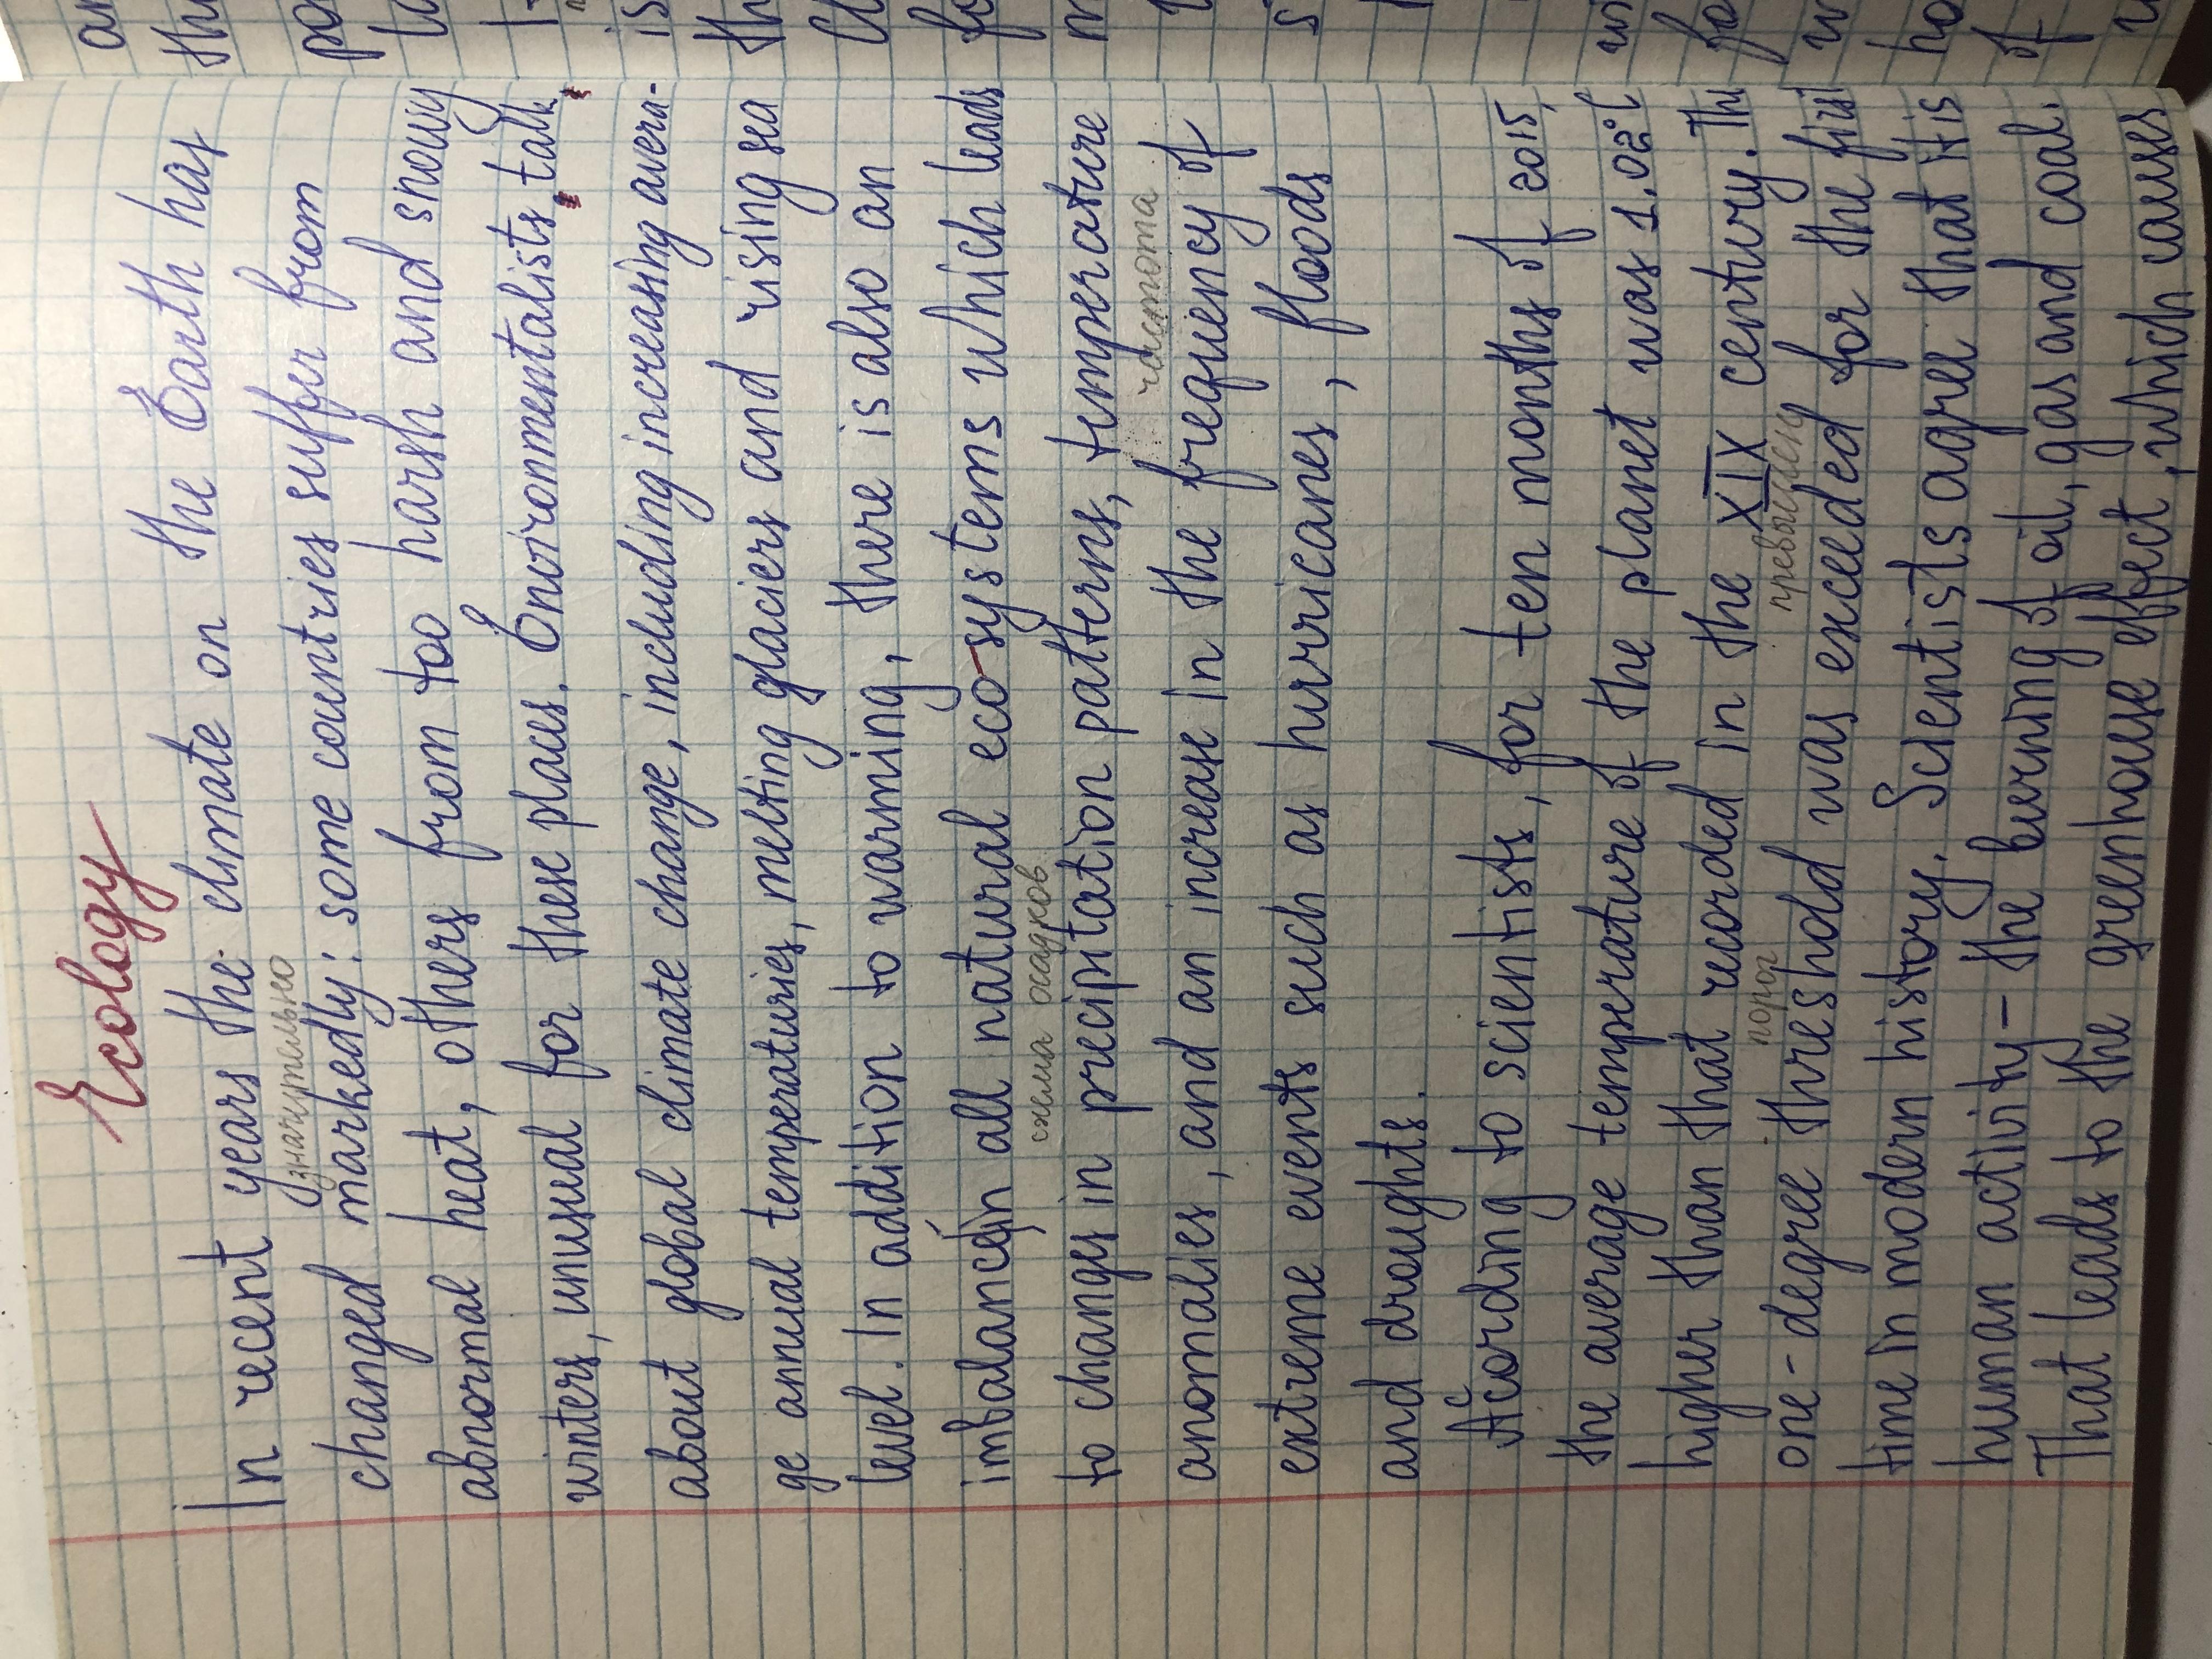 Ecology
In recent years the climate on the Earth has
значительно
changed markedly: some countries suffer from
abnormal heat, others from too harsh and snowy
winters, unusual for these places. Environmentalists talk
about global climate change, including increasing avera-
ge annual temperatures, melting glaciers and rising sea
level. In addition to warming, there is also an
imbalance in all natural eco-systems which leads
схема осадков
to changes in precipitation patterns, temperature
частота
anomalies, and an increase in the frequency of
extreme events such as hurricanes, floods
and droughts.
According to scientists, for ten months of 2015,
the average temperature of the planet was 1.02°C
higher than that recorded in the XIX century. The
порог превышен
one-degree threshold was exceeded for the first
time in modern history. Scientists agree that it is
human activity - the burning of oil, gas and coal.
That leads to the greenhouse effect, which causes